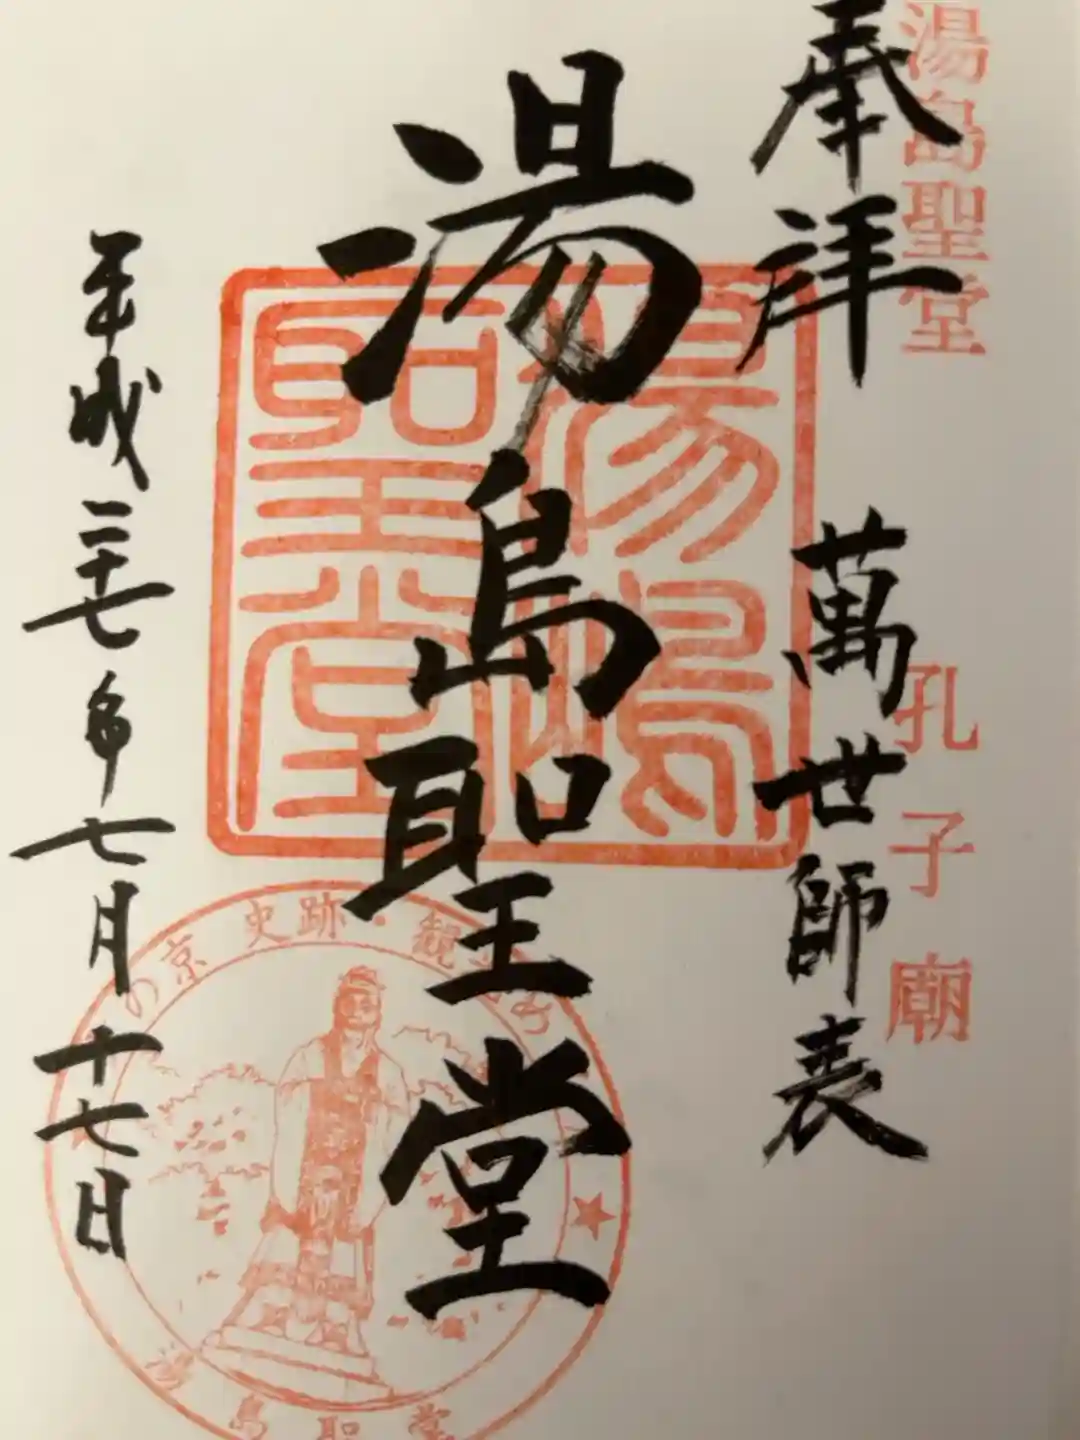 湯島聖堂
孔子廟
奉拝
萬世師表
湯島聖堂
湯島聖堂
平成二十七年七月十七日
の京 史跡・観
湯島聖堂